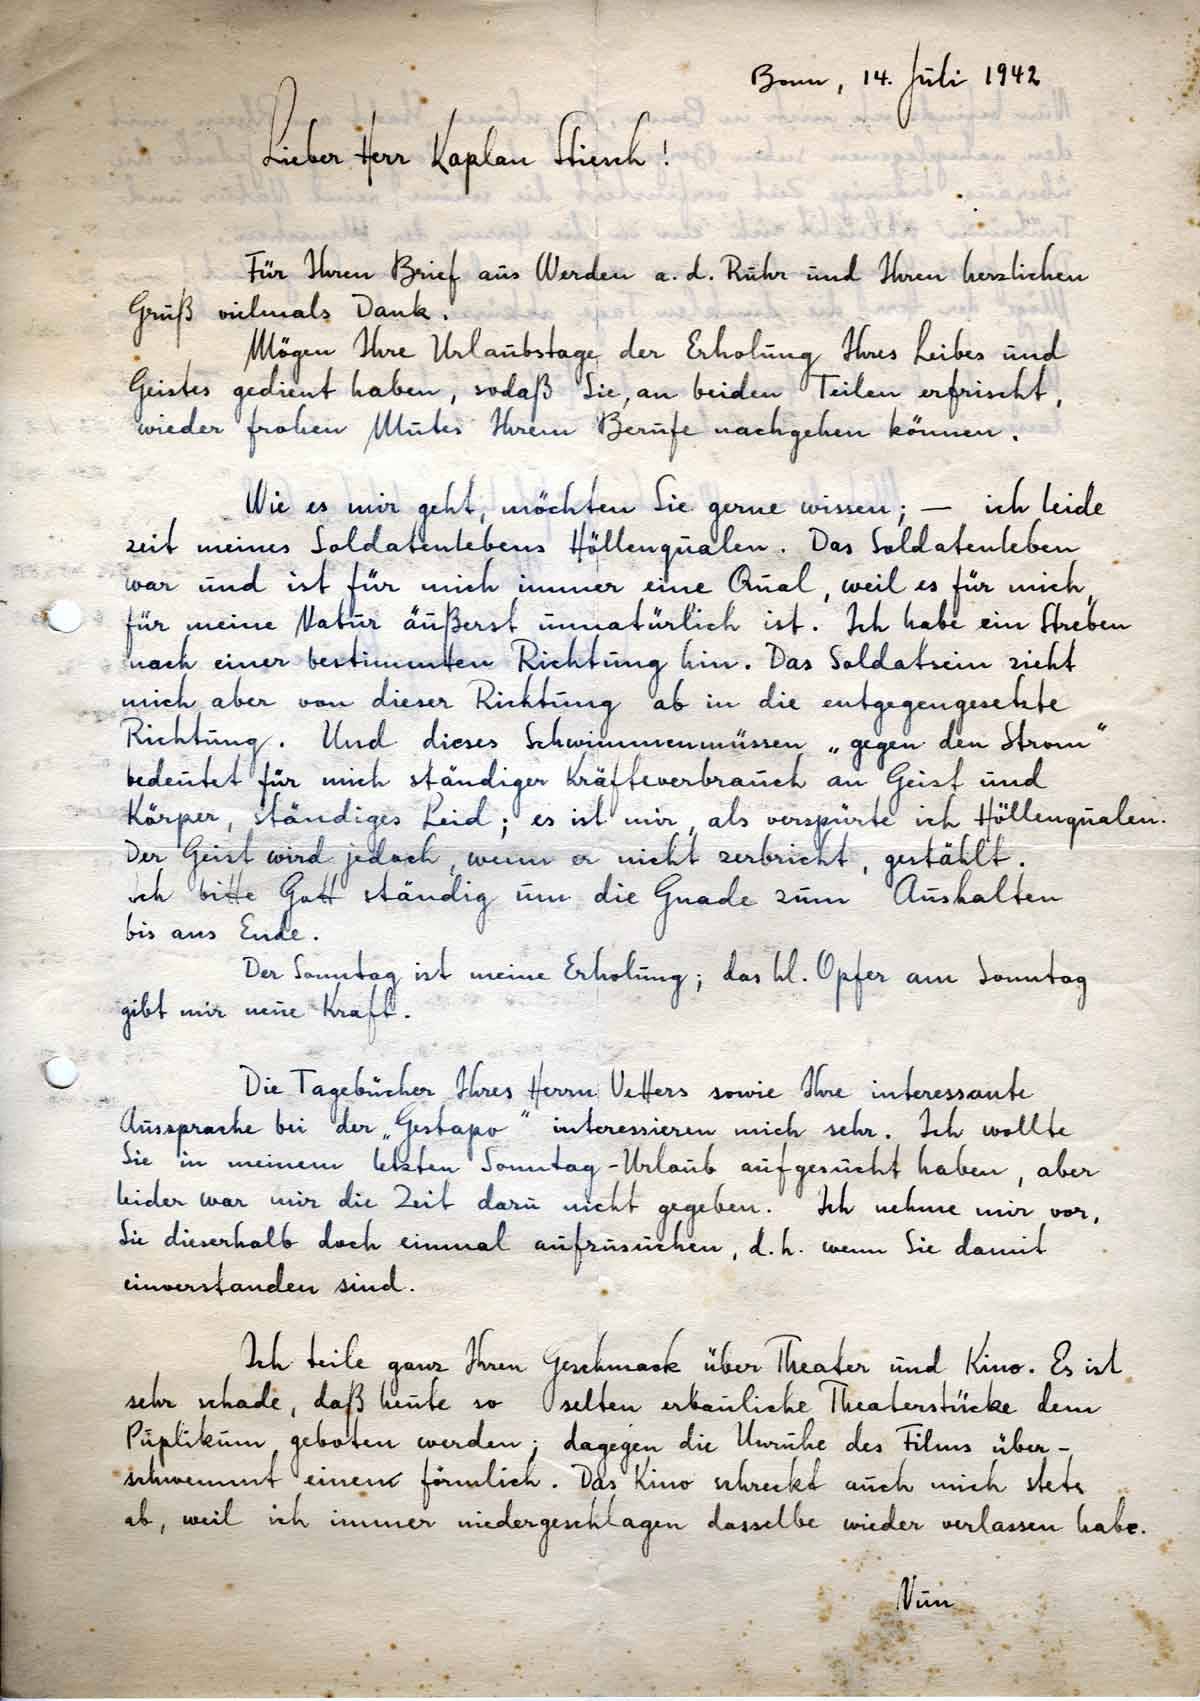 Bonn, 14. Juli 1942
Lieber Herr Kaplan Stiesch!
Für Ihren Brief aus Werden a. d. Ruhr und Ihren herzlichen
Gruß vielmals Dank.
Mögen Ihre Urlaubstage der Erholung Ihres Leibes und
Geistes gedient haben, sodaß Sie, an beiden Teilen erfrischt,
wieder frohen Mutes Ihrem Berufe nachgehen können.
Wie es mir geht, möchten Sie gerne wissen; — ich leide
zeit meines Soldatenlebens Höllenqualen. Das Soldatenleben
war und ist für mich immer eine Qual, weil es für mich,
für meine Natur äußerst unnatürlich ist. Ich habe ein Streben
nach einer bestimmten Richtung hin. Das Soldatsein zieht
mich aber von dieser Richtung ab in die entgegengesetzte
Richtung. Und dieses Schwimmenmüssen „gegen den Strom"
bedeutet für mich ständiger Kräfteverbrauch an Geist und
Körper, ständiges Leid; es ist mir, als verspürte ich Höllenqualen.
Der Geist wird jedoch, wenn er nicht zerbricht, gestählt.
Ich bitte Gott ständig um die Gnade zum Aushalten
bis ans Ende.
Der Sonntag ist meine Erholung; das hl. Opfer am Sonntag
gibt mir neue Kraft.
Die Tagebücher Ihres Herrn Vetters sowie Ihre interessante
Aussprache bei der „Gestapo" interessieren mich sehr. Ich wollte
Sie in meinem letzten Sonntag-Urlaub aufgesucht haben, aber
leider war mir die Zeit dazu nicht gegeben. Ich nehme mir vor,
Sie dieserhalb doch einmal aufzusuchen, d. h. wenn Sie damit
einverstanden sind.
Ich teile ganz Ihren Geschmack über Theater und Kino. Es ist
sehr schade, daß heute so selten erbauliche Theaterstücke dem
Puplikum geboten werden; dagegen die Unruhe des Films über-
schwemmt einen förmlich. Das Kino schreckt auch mich stets
ab, weil ich immer niedergeschlagen dasselbe wieder verlassen habe.
Nun